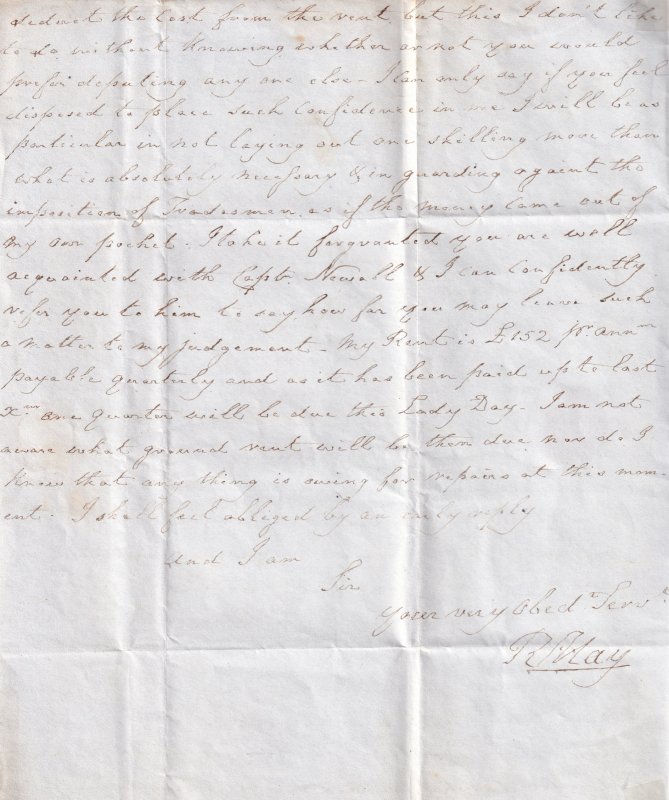 deduct the cost from the rent but this I don't like
to do without knowing whether or not you would
prefer deputing any one else - I can only say if you feel
disposed to place such confidence in me I will be as
particular in not laying out one shilling more than
what is absolutely necessary & in guarding against the
imposition of Tradesmen as if the money came out of
my own pocket. I take it for granted you are well
acquainted with Capt. Newall & I can confidently
refer you to him to say how far you may leave such
a matter to my judgement - My Rent is £152 pr. annm
payable quarterly and as it has been paid up to last
Xmas one quarter will be due this Lady Day - I am not
aware what ground rent will be then due nor do I
know that any thing is owing for repairs at this mom
ent. I shall feel obliged by an early reply
and I am
Sir
your very Obedt Servt
R May